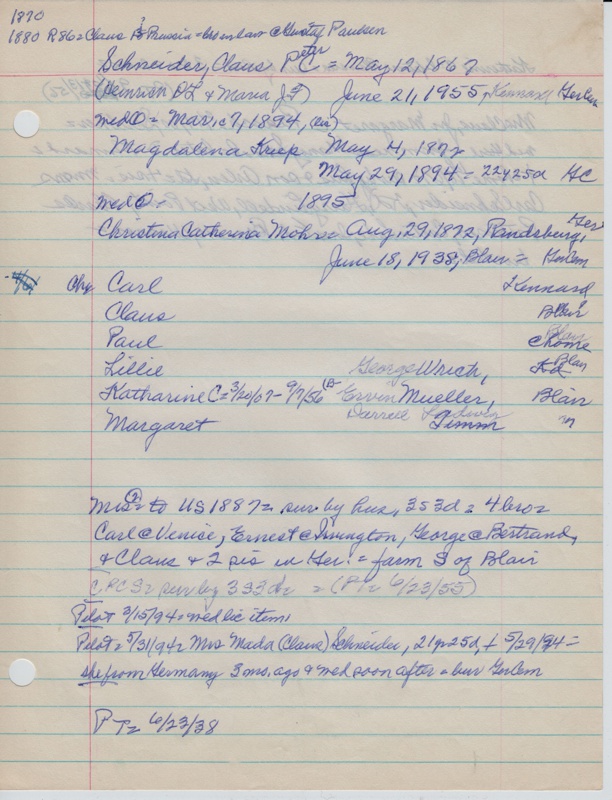 1870
1880 R86 = Claus Prussia = bro en law c Gustaf Paulsen
Schneider, Claus Peter C = May 12, 1867
(Heinrich DL & Maria J F) June 21, 1955, Kennard Gerlem
med ① = Mar. c 7, 1894, (en)
Magdalena Kuep May 4, 1872
May 29, 1894 = 22y25d GC
med ② = 1895
Christina Catherina Mohr = Aug. 29, 1872, Randsburg, Ger
June 18, 1938, Blair = Gerlem
Chr Carl Kennard
Claus Blair
Paul c home Blair
Lillie George Wrich, Blair
Katharine C = 3/20/07 - 9/7/56 Ervin Mueller, Blair
Margaret Darrell Ladwin Timm "
Mrs ② = to US 1887 = sur. by hus, 3s3d = 4 bro =
Carl c Venice, Ernest c Irvington, George c Bertrand,
& Claus & 2 sis in Ger. = farm S of Blair
C P C S = sur by 3s3d = (PT = 6/23/55)
Pilot 3/15/94 = wed lic item
Pilot = 5/31/94 = Mrs Mada (Claus) Schneider, 21y25d, + 5/29/94 =
she from Germany 3 mo. ago & wed soon after = bur Gerlem
PT = 6/23/38